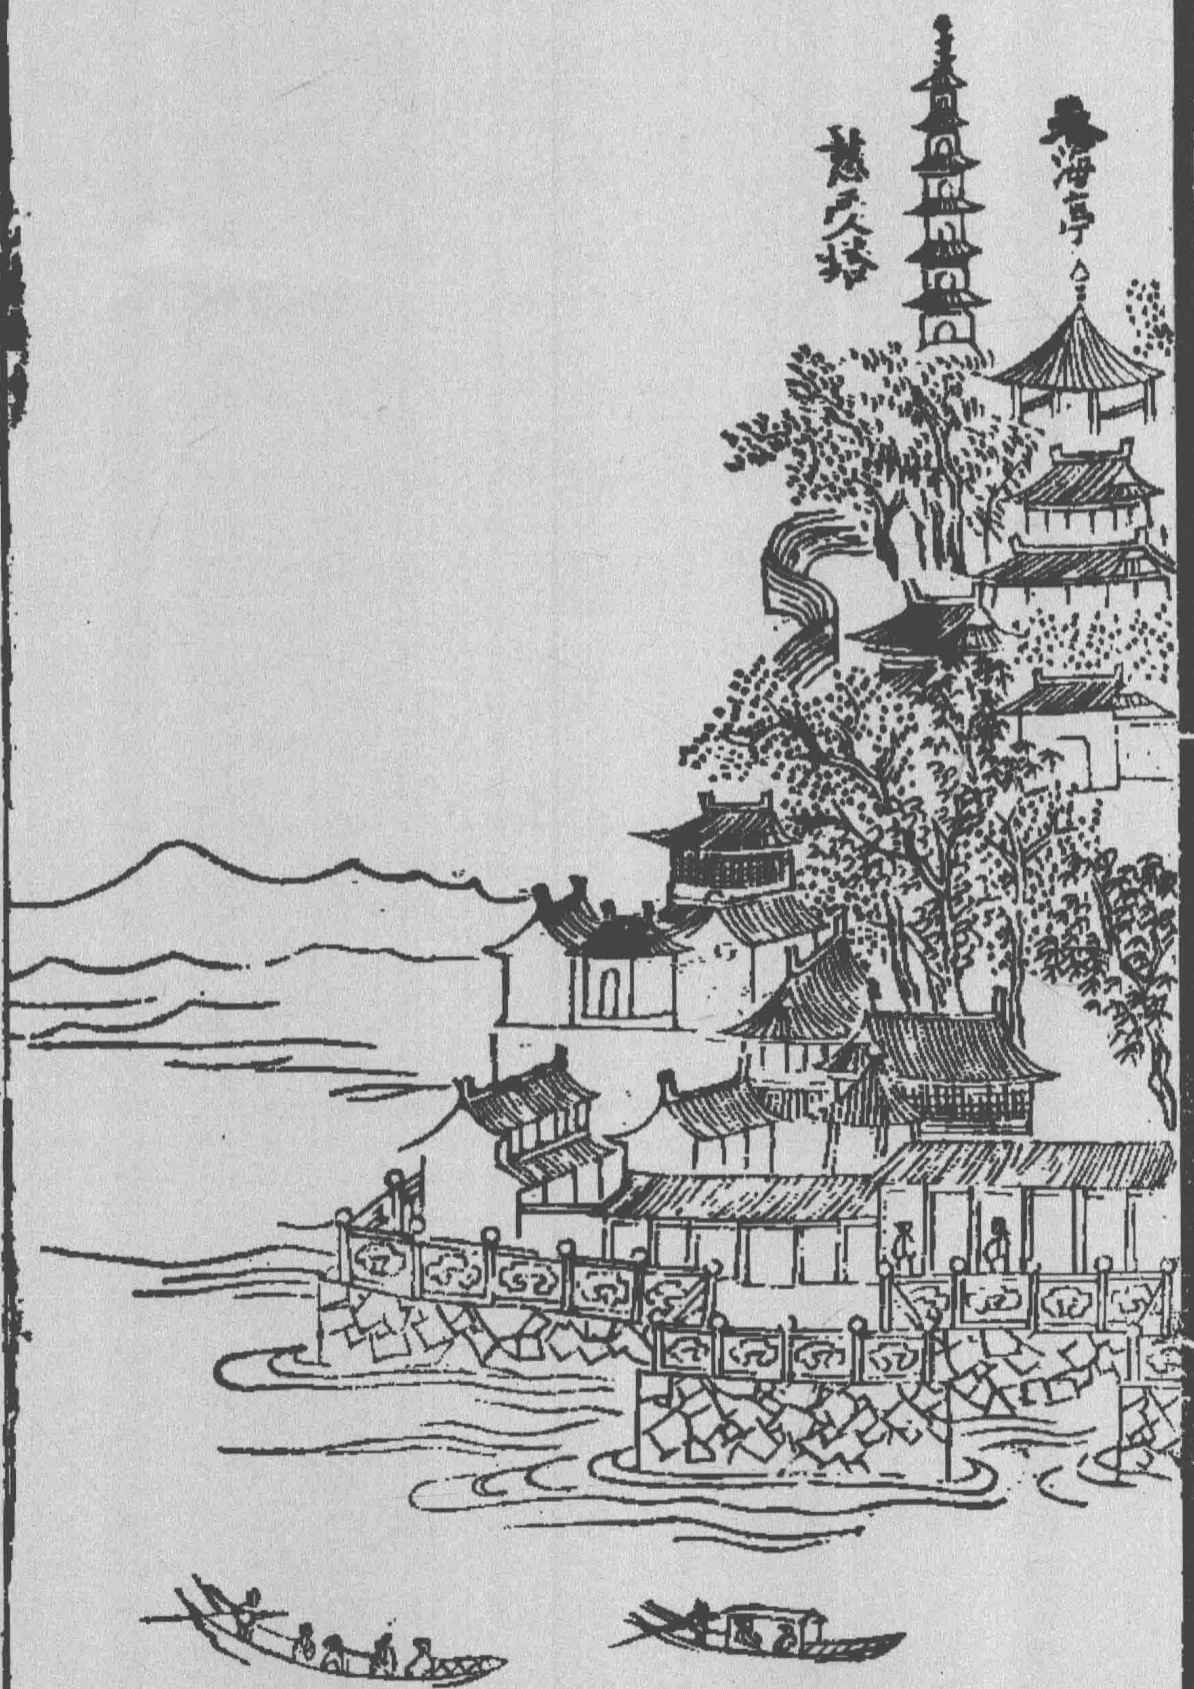 吞海亭
慈壽塔